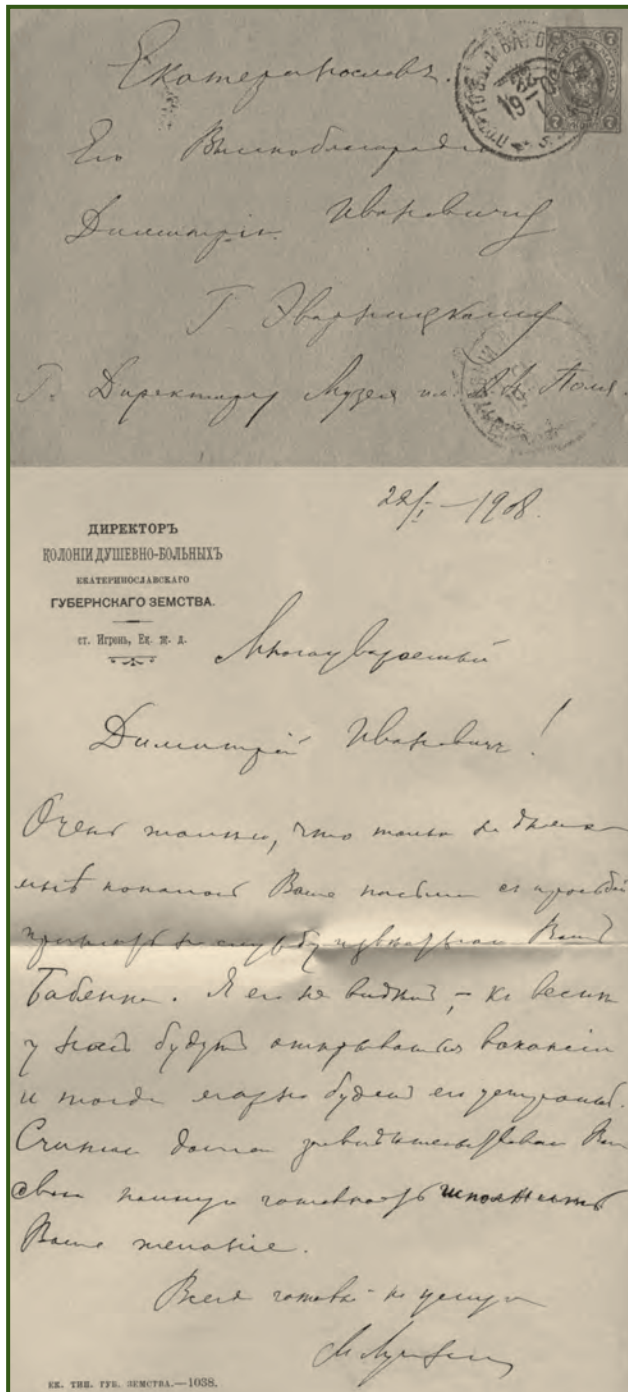 Екатеринославъ.
Его Высокоблагородію
Димитрію Ивановичу
Г. Эварницкому
Г. Директору Музея им. А. Н. Поля.
7 7
7 7
22/I – 1908.
ДИРЕКТОРЪ
КОЛОНІИ ДУШЕВНО-БОЛЬНЫХЪ
ЕКАТЕРИНОСЛАВСКАГО
ГУБЕРНСКАГО ЗЕМСТВА.
ст. Игрень, Ек. ж. д.
Многоуважаемый
Димитрій Ивановичъ!
Очень , что только на
мнѣ Ваше съ просьбой
на службу Вамъ
Бабенка. Я его не видѣлъ, – къ веснѣ
у насъ будутъ открываться вакансіи
и тогда можно будетъ его устроить.
Считаю засвидѣтельствовать Вам
свою полную готовность исполнить
Ваше желаніе.
Всегда готовый къ услугамъ
ЕК. ТИП. ГУБ. ЗЕМСТВА.—1038.